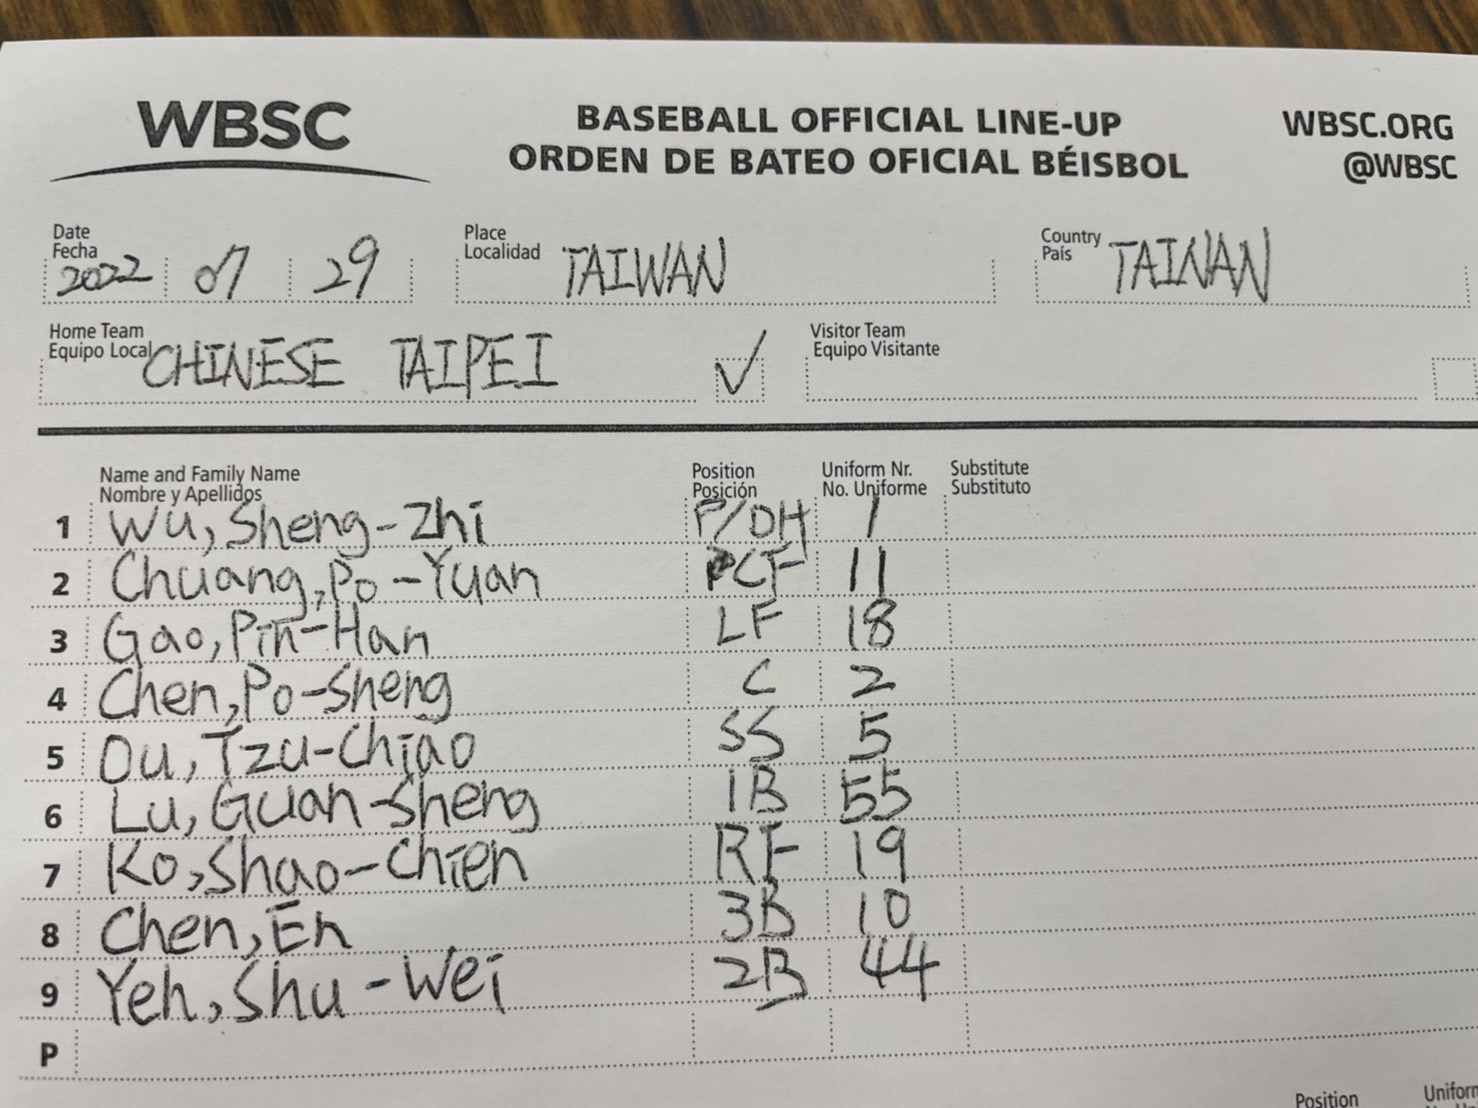 WBSC
BASEBALL OFFICIAL LINE-UP
ORDEN DE BATEO OFICIAL BÉISBOL
WBSC.ORG
@WBSC
Date
Fecha
2022 07 29
Place
Localidad
TAIWAN
Country
País
TAINAN
Home Team
Equipo Local
CHINESE TAIPEI ✓
Visitor Team
Equipo Visitante
Name and Family Name Position Uniform Nr. Substitute
Nombre y Apellidos Posición No. Uniforme Substituto
1 Wu, Sheng-Zhi P/DH 1
2 Chuang, Po-Yuan CF 11
3 Gao, Pin-Han LF 18
4 Chen, Po-Sheng C 2
5 Ou, Tzu-Chiao SS 5
6 Lu, Guan-Sheng 1B 55
7 Ko, Shao-Chien RF 19
8 Chen, En 3B 10
9 Yeh, Shu-Wei 2B 44
P
Position